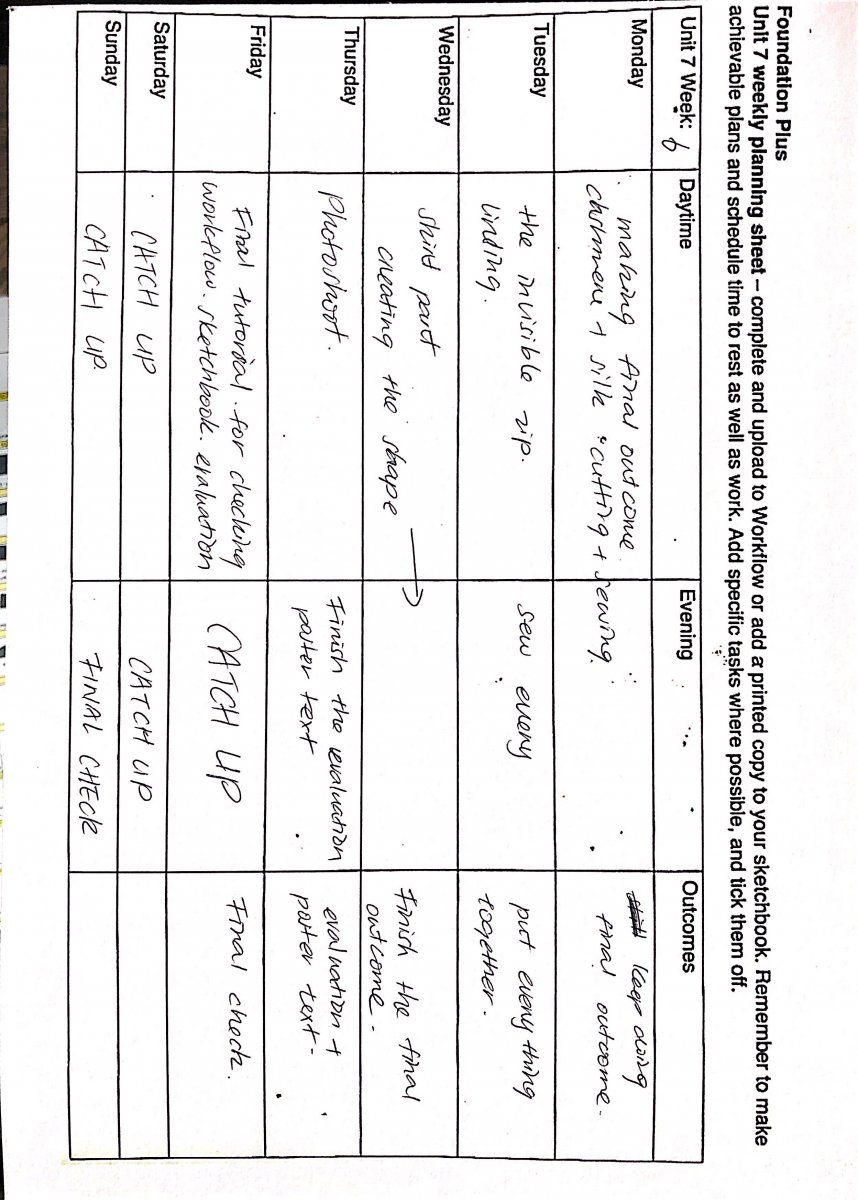 Foundation Plus
Unit 7 weekly planning sheet – complete and upload to Workflow or add a printed copy to your sketchbook. Remember to make
achievable plans and schedule time to rest as well as work. Add specific tasks where possible, and tick them off.
Unit 7 Week: 6
Daytime
Evening
Outcomes
Monday
making final outcome
+ silk cutting + sewing.
keep doing
final outcome.
Tuesday
the invisible zip.
linding.
sew every
put every thing
together.
Wednesday
skirt part
creating the shape
→
Finish the final
outcome.
Thursday
Photoshoot.
Finish the evaluation
poster text
evaluation +
poster text.
Friday
Final tutorial for checking
workflow. sketchbook. evaluation
CATCH UP
Final check.
Saturday
CATCH UP
CATCH UP
Sunday
CATCH UP.
FINAL CHECK